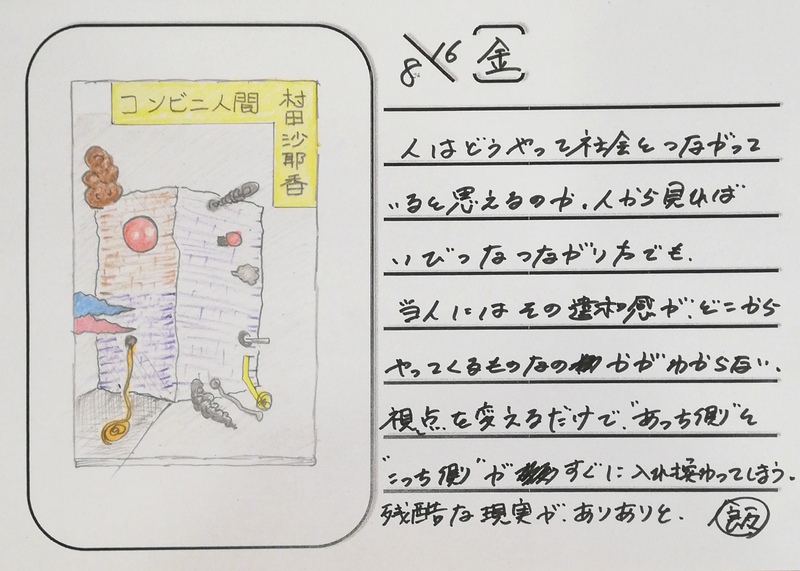 コンビニ人間
村田沙耶香
8/16 金
人はどうやって社会とつながって
いると思えるのか。人から見れば
いびつなつながり方でも、
当人にはその違和感が、どこから
やってくるものなのかがわからない。
視点を変えるだけで、"あっち側"と
"こっち側"がすぐに入れ換わってしまう。
残酷な現実が、ありありと。
飯